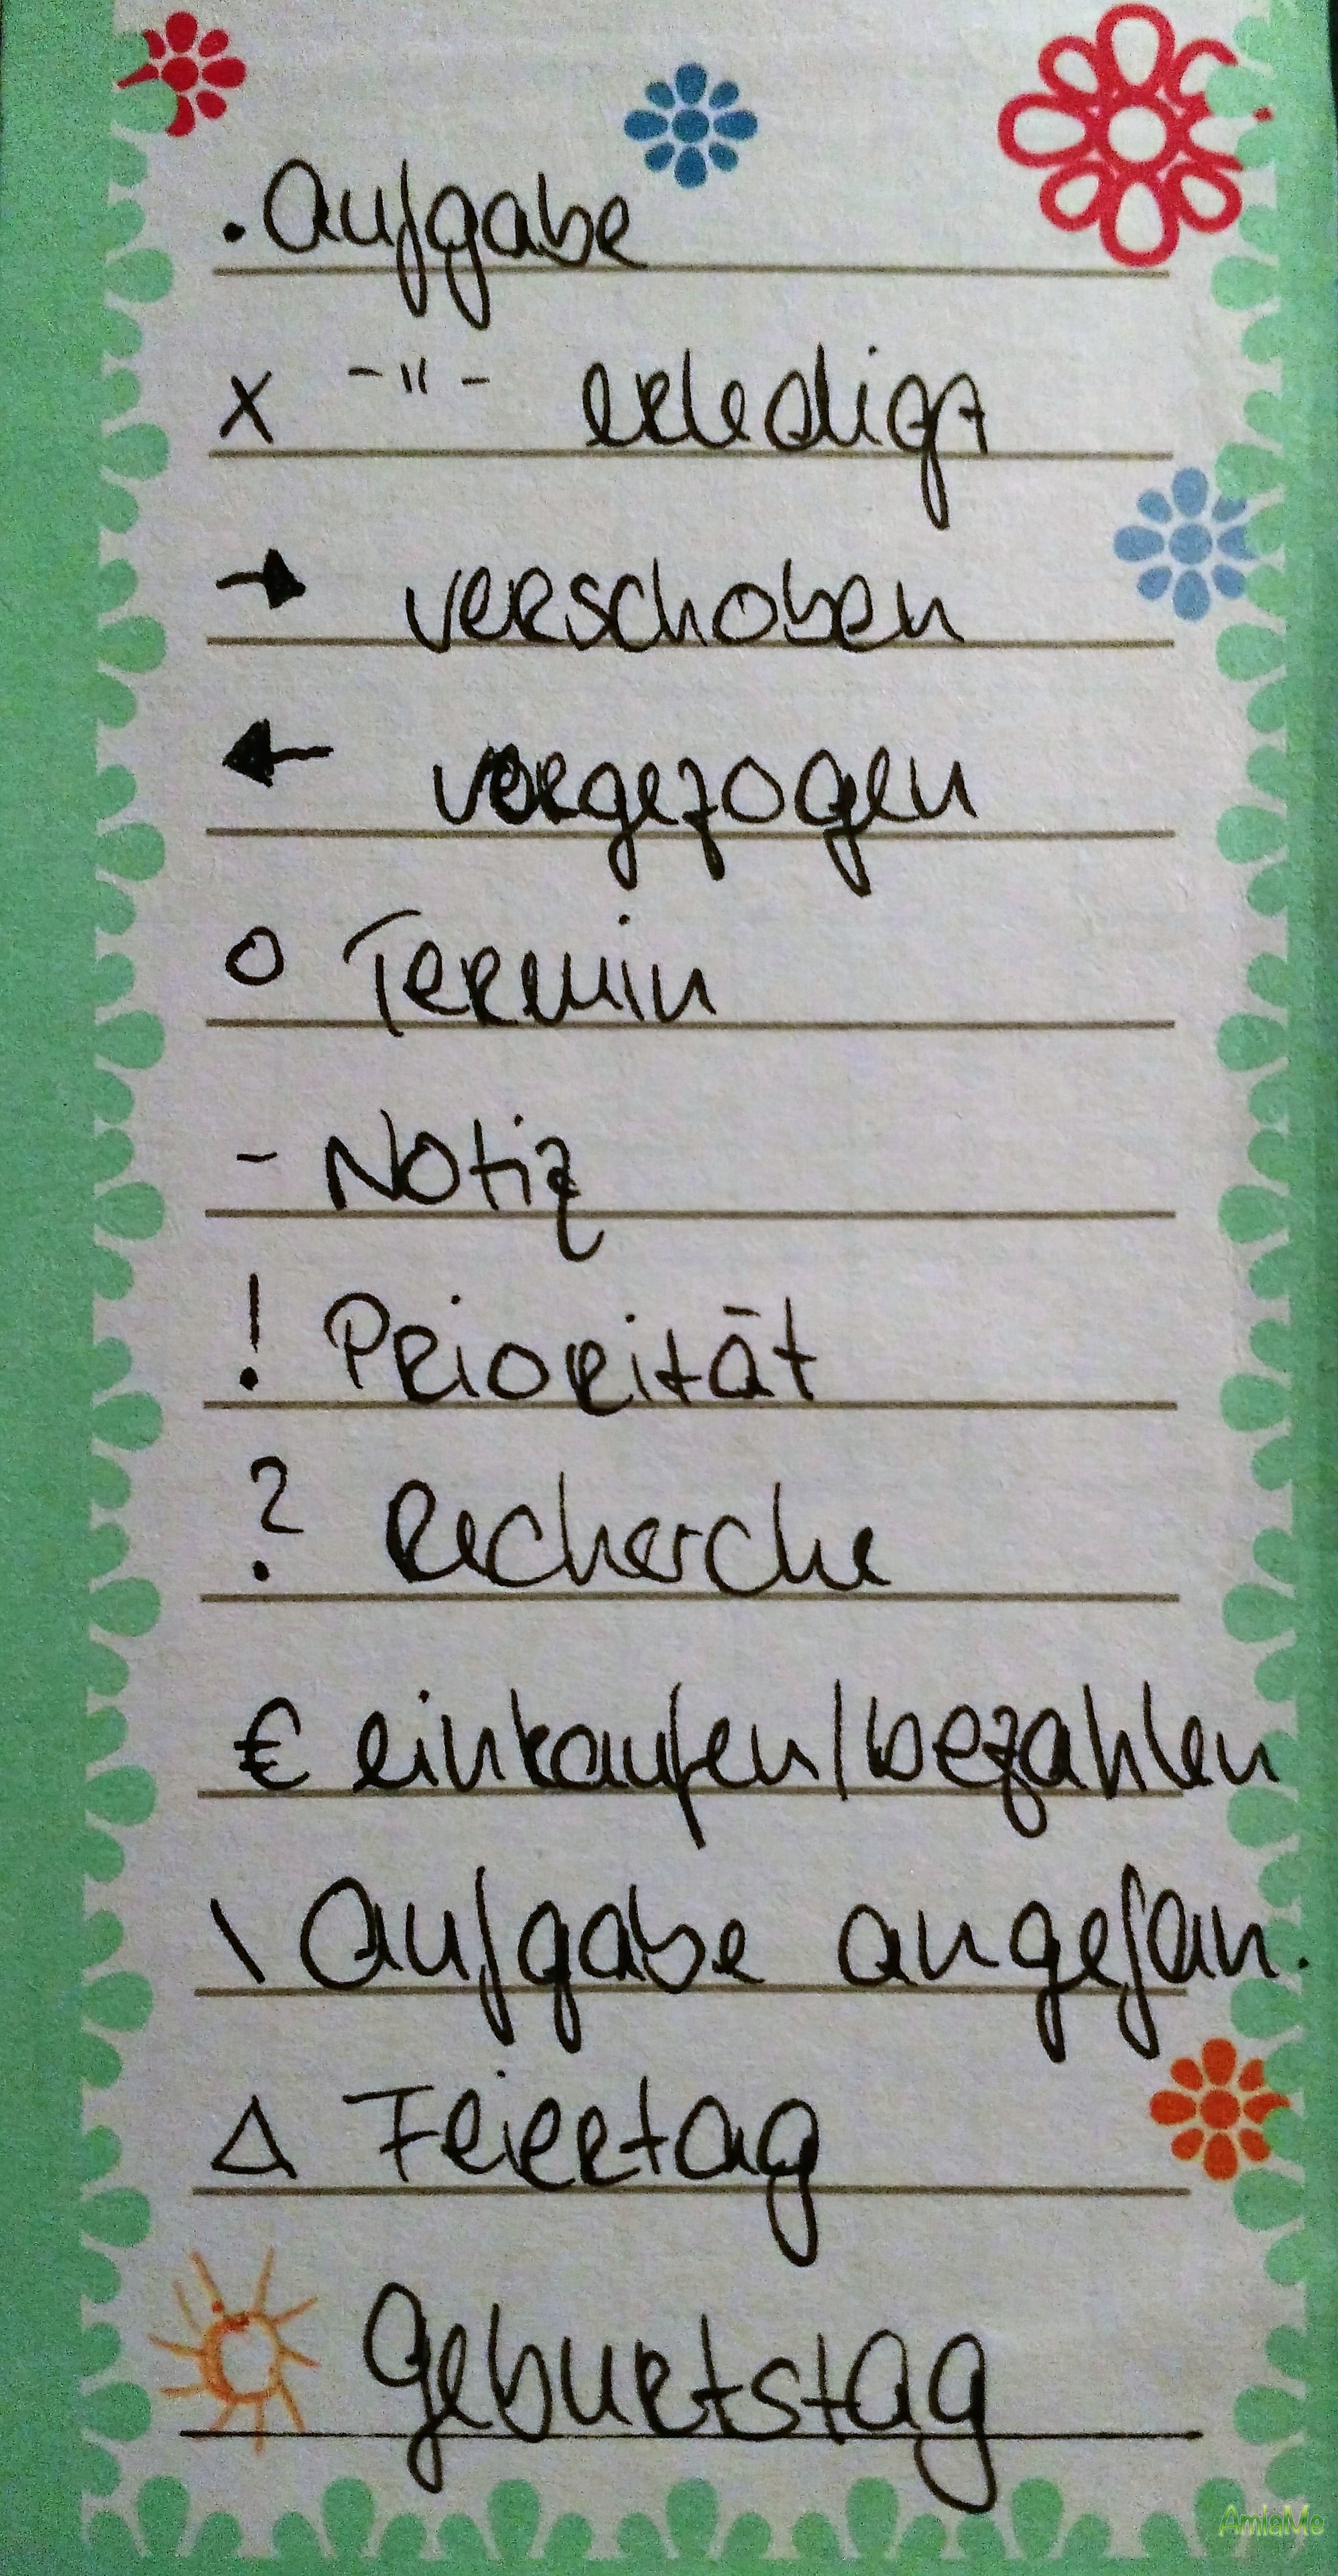 . Aufgabe
x -"- erledigt
→ verschoben
← vorgezogen
o Termin
- Notiz
! Priorität
? Recherche
€ einkaufen/bezahlen
\ Aufgabe angefan.
△ Feiertag
Geburtstag
AmlaMe